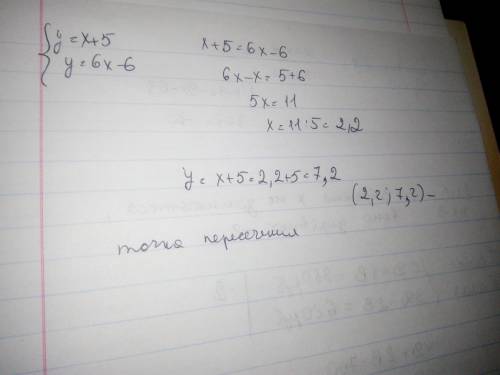 { y = x+5
y = 6x-6
x+5 = 6x-6
6x-x = 5+6
5x = 11
x = 11:5 = 2,2
y = x+5 = 2,2+5 = 7,2
(2,2; 7,2) –
точка пересечения